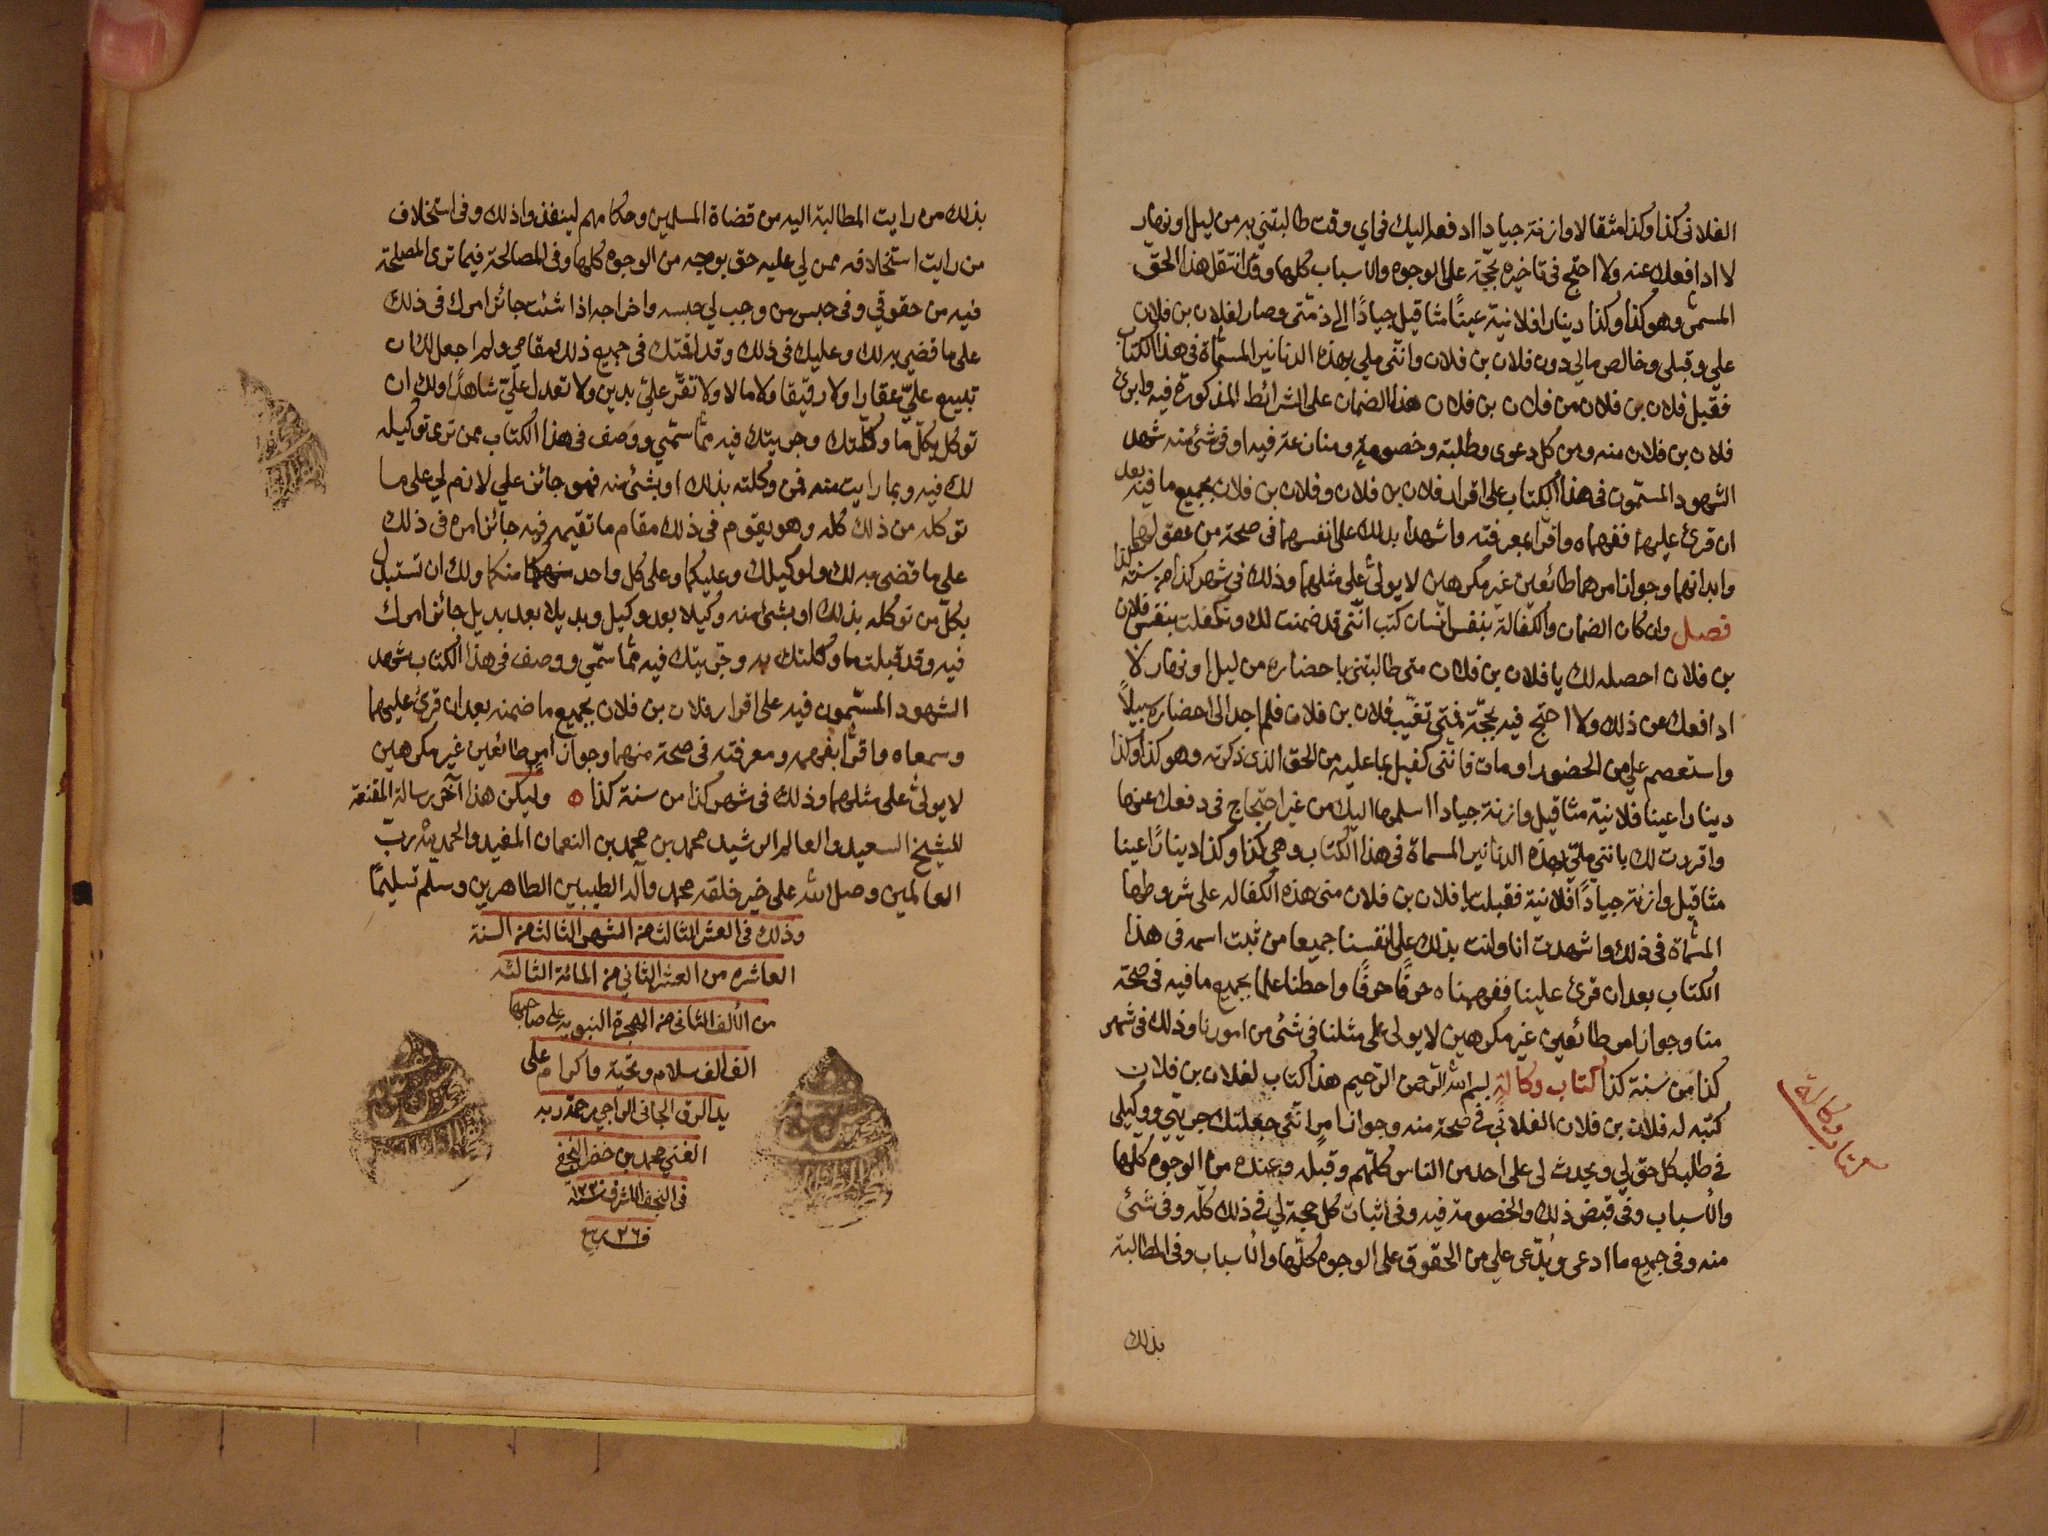 الفلانى كذا وكذا مثقالا وازنة جيادا ادفعها اليك فى اى وقت طالبتنى به من ليل او نهار
لا ادافعك عنه ولا احتج فى تاخيره بحجّة على الوجوه والاسباب كلها وقد انتقل هذا الحق
المسمّى وهو كذا وكذا دينارا فلانية عينًا مثاقيل جيادًا الى ذمّتى وصار لفلان بن فلان
علي وقبلى وخالص مالي دون فلان بن فلان واننى ملي بهذه الدنانير المسمّاة فى هذا الكتاب
فقبل فلان بن فلان من فلان بن فلان هذا الضمان على الشرائط المذكورة فيه وابرئ
فلان بن فلان منه ومن كل دعوى وطلبة وخصومة ومنازعة فيه او فى شئ منه شهد
الشهود المسمّون فى هذا الكتاب على اقرار فلان بن فلان وفلان بن فلان بجميع ما فيه بعد
ان قرئ عليهما ففهماه واقرّا بمعرفته واشهدا بذلك على انفسهما فى صحة من عقولهما
وابدانهما وجواز امرهما طائعين غير مكرهين لا يولىّ على مثلهما وذلك فى شهر كذا من سنة كذا
فصل وان كان الضمان والكفالة بنفس انسان كتب انّنى قد ضمنت لك وتكفلت بنفس فلان
بن فلان احصله لك يا فلان بن فلان متى طالبتنى باحضاره من ليل او نهار لا
ادافعك عن ذلك ولا احتج فيه بحجّة فمتى تغيّب فلان بن فلان فلم اجد الى احضاره سبيلاً
واستعصم علي من الحضور او مات فاننى كفيل بما عليه من الحق الذى ذكرته وهو كذا وكذا
دينارا عينا فلانية مثاقيل وازنة جيادا اسلمها اليك من غير احتجاج فى دفعك عنها
واقررت لك باننى مليّ بهذه الدنانير المسماة فى هذا الكتاب وهي كذا وكذا دينارًا عينا
مثاقيل وازنة جيادًا فلانية فقبلت يا فلان بن فلان منى هذه الكفاله على شروطها
المسمّاة فى ذلك واشهدت انا وانت بذلك على انفسنا جميعا من ثبت اسمه فى هذا
الكتاب بعد ان قرئ علينا ففهمناه حرفًا حرفًا واحطنا علما بجميع ما فيه فى صحة
منا وجواز امر طائعين غير مكرهين لا يولى على مثلنا فى شئ من امورنا وذلك فى شهر
كذا من سنة كذا كتاب وكالة بسم الله الرّحمن الرّحيم هذا كتاب لفلان بن فلان
كتبه له فلان بن فلان الفلانى في صحة منه وجواز امر انّنى جعلتك جريّي ووكيلى
في طلب كل حق لي ويحدث لى على احد من الناس كلّهم وقبله وعنده من الوجوه كلها
والأسباب وفى قبض ذلك والخصومة فيه وفى اثبات كل حجة لي فى ذلك كلّه وفى شئ
منه وفى جميع ما ادعى ويُدّعى علي من الحقوق على الوجوه كلّها والاسباب وفى المطالبة
كتاب وكالة
بذلك
بذلك من رايت المطالبة اليه من قضاة المسلمين وحكامهم لينفذوا ذلك وفى استخلاف
من رايت استخلافه ممن لي عليه حق بوجه من الوجوه كلها وفى المصالحة فيما ترى المصلحة
فيه من حقوقي وفى حبس من وجب لي حبسه واخراجه اذا شئت جائز امرك فى ذلك
على ما قضي به لك وعليك فى ذلك وقد اقمتك فى جميع ذلك مقامي ولم اجعل لك ان
تبيع عليّ عقارا ولا رقيقا ولا مالا ولا تقرّ عليّ بدين ولا تعدل عليّ شاهدًا ولك ان
توكل بكلّ ما وكّلتك وجريتك فيه ممّا سمّي ووصف فى هذا الكتاب ممن ترى توكيله
لك فيه وبما رايت منه فمن وكلته بذلك او بشئ منه فهو جائز علي لازم لي على ما
توكله من ذلك كله وهو يقوم فى ذلك مقام ما تقيمه فيه جائز امره فى ذلك
على ما قضى به لك ولوكيلك وعليكما وعلى كل واحد منكما ولك ان تستبدل
بكلّ من توكله بذلك او بشئ منه وكيلا بعد وكيل وبديلا بعد بديل جائز امرك
فيه وقد قبلت ما وكلتك به وجرّيتك فيه ممّا سمّي ووصف فى هذا الكتاب شهد
الشهود المسمّون فيه على اقرار فلان بن فلان بجميع ما ضمنه بعد ان قرئ عليهما
وسمعاه واقرّا بفهمه ومعرفته فى صحة منهما وجواز امر طائعين غير مكرهين
لا يولىّ على مثلهما وذلك فى شهر كذا من سنة كذا وليكن هذا آخر رسالة المقنعة
للشيخ السعيد والعالم الرشيد محمد بن محمد بن النعمان المفيد والحمد لله ربّ
العالمين وصلى الله على خير خلقه محمد وآله الطيبين الطاهرين وسلم تسليمًا
وذلك فى العشر الثالث من الشهر الثالث من السنة
العاشره من العشر الثاني من المائة الثالثه
من الألف الثانى من الهجرة النبويه على صاحبها
الف الف سلام وتحية واكرام على
يد الرق الجانى الراجي رحمة ربه
الغني محمد بن خضر النجفي
فى النجف الاشرف سنة ١٢٢٠
فى ٢٦ ربيع